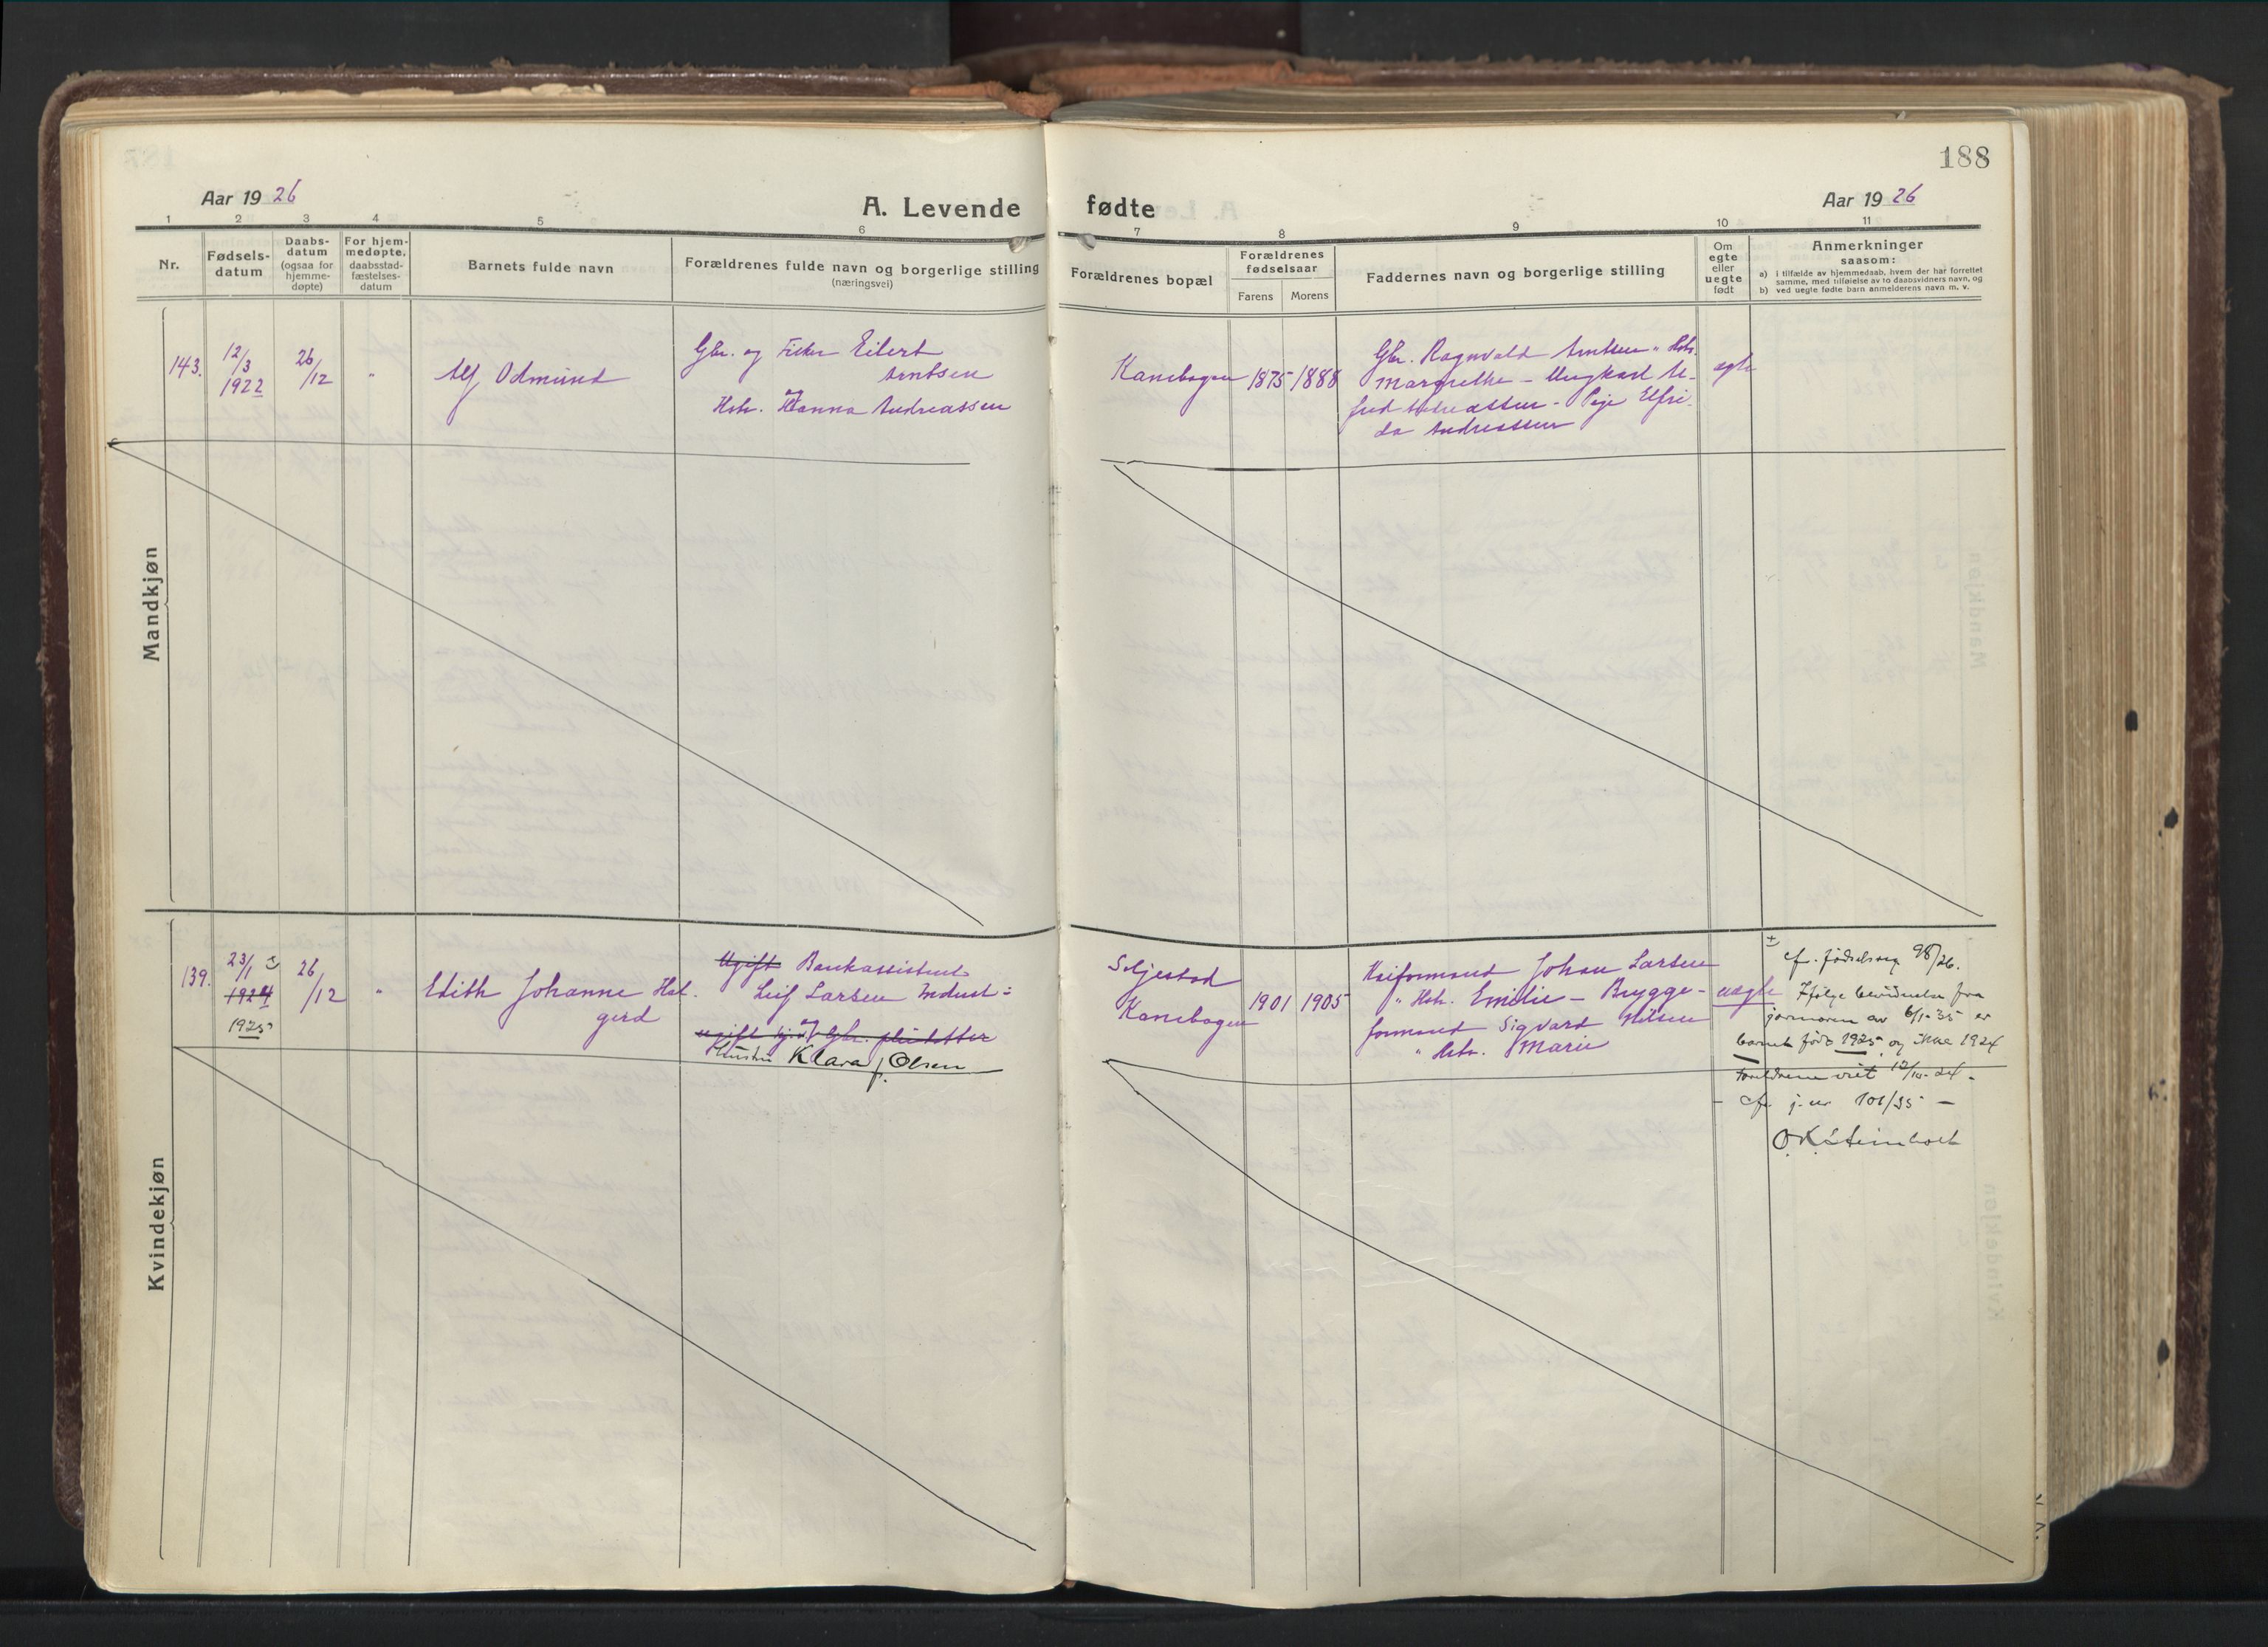 188
Aar 1926
A. Levende
fødte
Aar 1926
1 2 3 4 5 6 7 8 9 10 11
Nr.
Fødsels-
datum
Daabs-
datum
(ogsaa for
hjemme-
døpte)
For hjem-
medøpte,
daabsstad-
fæstelses-
datum
Barnets fulde navn
Forældrenes fulde navn og borgerlige stilling
(næringsvei)
Forældrenes bopæl
Forældrenes
fødselsaar
Farens
Morens
Faddernes navn og borgerlige stilling
Om
egte
eller
uegte
født
Anmerkninger
saasom:
a) i tilfælde av hjemmedaab, hvem der har forrettet
samme, med tilføielse av to daabsvidners navn, og
b) ved uegte fødte barn anmelderens navn m. v.
Mandkjøn
143.
12/3
1922
26/12
"
Alf Odmund
Gbr. og Fisker Eilert
Arntsen
og
Hstr. Hanna Andreassen
Kanebogen
1875
1888
Gbr. Ragnvald Arntsen " Hstr.
Margrethe - Ungkarl Al-
fred Andreassen - Pige Elfri-
da Andreassen
egte
Kvindekjøn
139.
23/1
1924
1925
26/12
"
Edith Johanne Hal.
gerd
Ugift Bankassistent
Leif Larsen Indust=
og
ugift Gbr.
Hustru Klara f. Olsen
Seljestad
Kanebogen
1901
1905
Johan Larsen
" Hstr. Emilie - Brygge-
formand Sigvard Nilsen
" Hstr. Marie
uegte
cfr. fødselsreg 98/26.
Ifølge fra
jormoren av 6/1-35 er
barnet født 1925 og ikke 1924
Foreldrene viet 12/10-24 -
cfr. j.nr 101/35 -
O.K. Steinholt